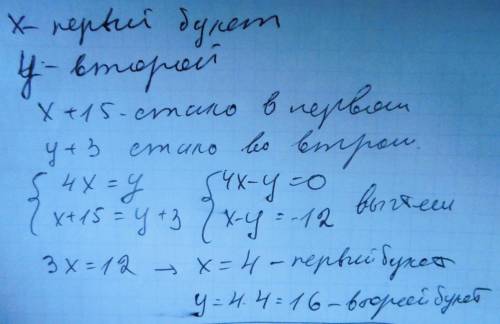 x - первый букет
y - второй
x + 15 - стало в первом
y + 3 стало во втором.
{ 4x = y { 4x - y = 0
{ x + 15 = y + 3 { x - y = -12 вычтем
3x = 12 → x = 4 - первый букет
y = 4 · 4 = 16 - второй букет